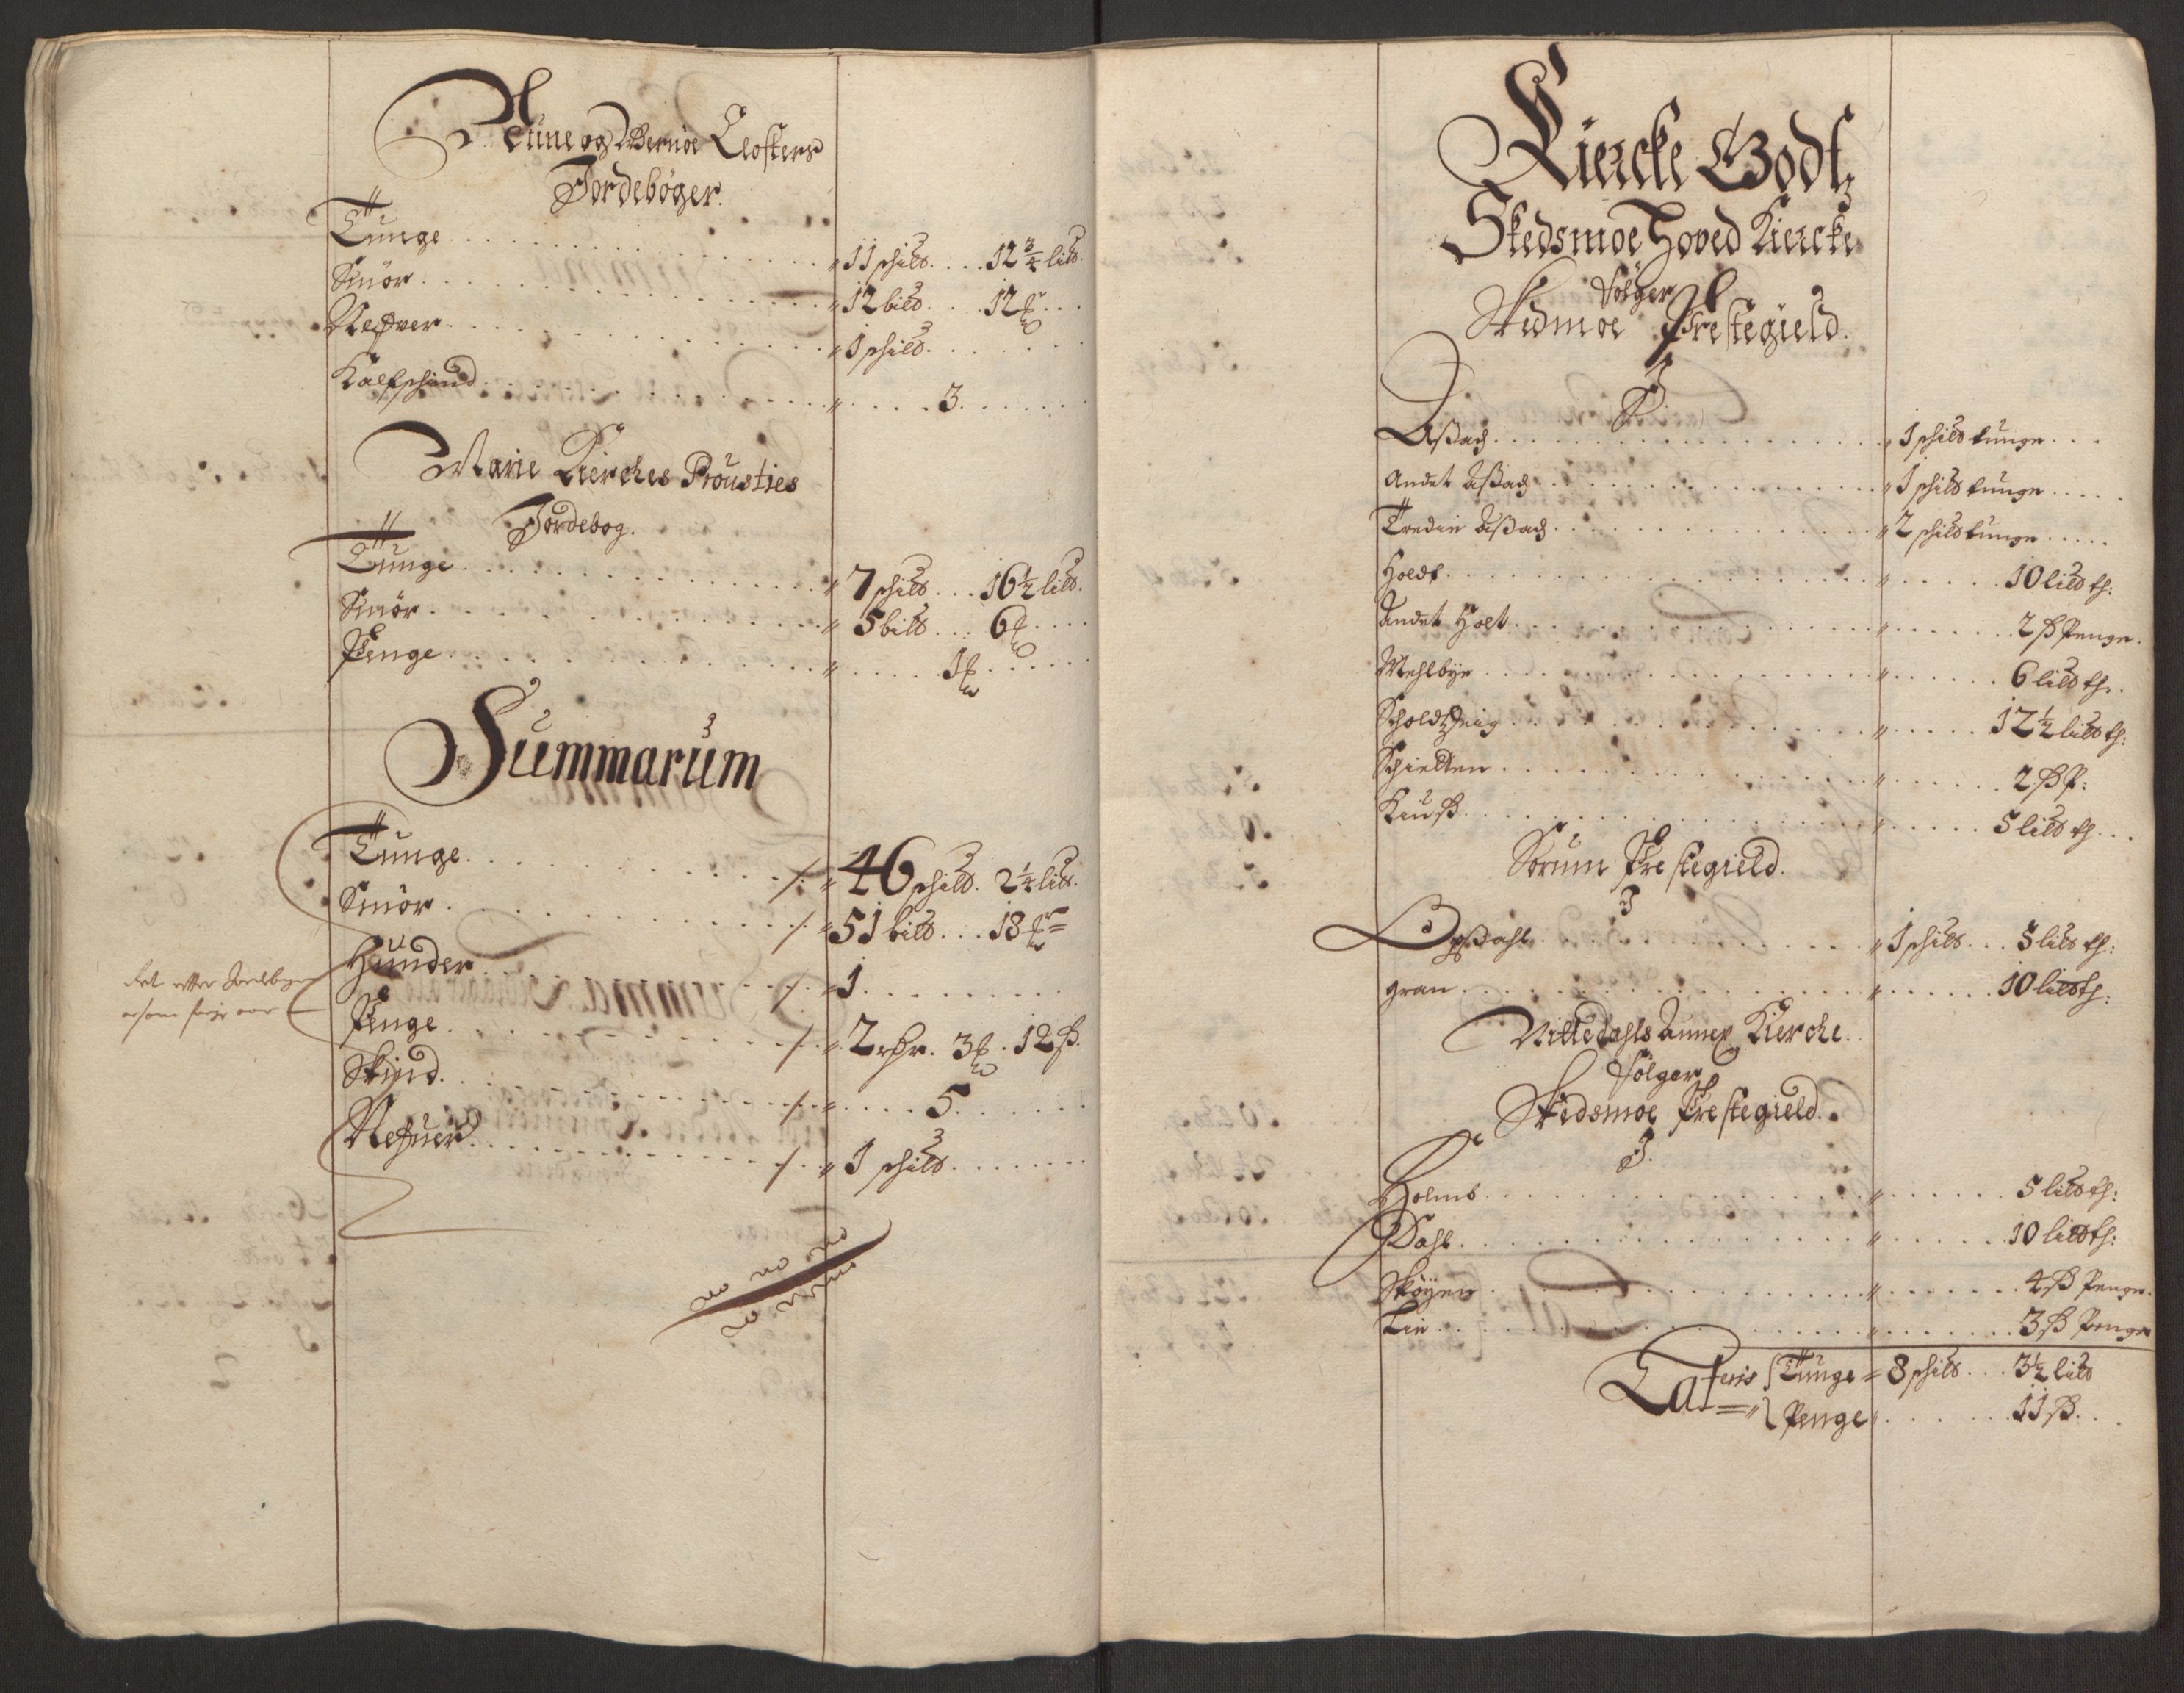 Tune og Wernøe Closters
Jordebøger.
Tunge " 11 schild. 12 3/4 lild.
Smör " 12 bild 12
Nefver " 1 schild.
Kalfschind " 3
Marie Kierches Prousties
Jordebog.
Tunge " 7 schild 16 1/2 lild.
Smör " 5 bild 6
Penge " 1
Summarum
Tunge /. " 46 schild. 2 1/4 lild.
Smör /. " 51 bild 18
Hunder /. " 1
Penge /. " 2 rdr. 3 . 12 ß.
Skind /. " 5
Nefuer /. " 1 schild
Kiercke Godtz
Skedsmoe Hoved Kiercke
følger
Skedmoe Prestegield.
Aßach " 1 schild tunge
Andet Aßach " 1 schild tunge
Tredie Aßach " 2 schild tunge
Holdt " 10 lild th:
Andet Holt " 2 ß Penge.
Mehlbye " 6 lild th.
" 12 1/2 lild th:
Schietten " 2 ß P:
Kiuß " 5 lild th
Sorum Prestegield.
" 1 schild 5 lild th:
gran " 10 lild th:
Nittedahls Annex Kierche.
følger
Skedsmoe Prestegield.
Holms " 5 lild th:
Dahl " 10 lild th:
Skøyen " 4 ß Penge.
Lie " 3 ß Penge
Lateris Tunge = 8 schild 3 1/2 lild
Penge " 11 ß.